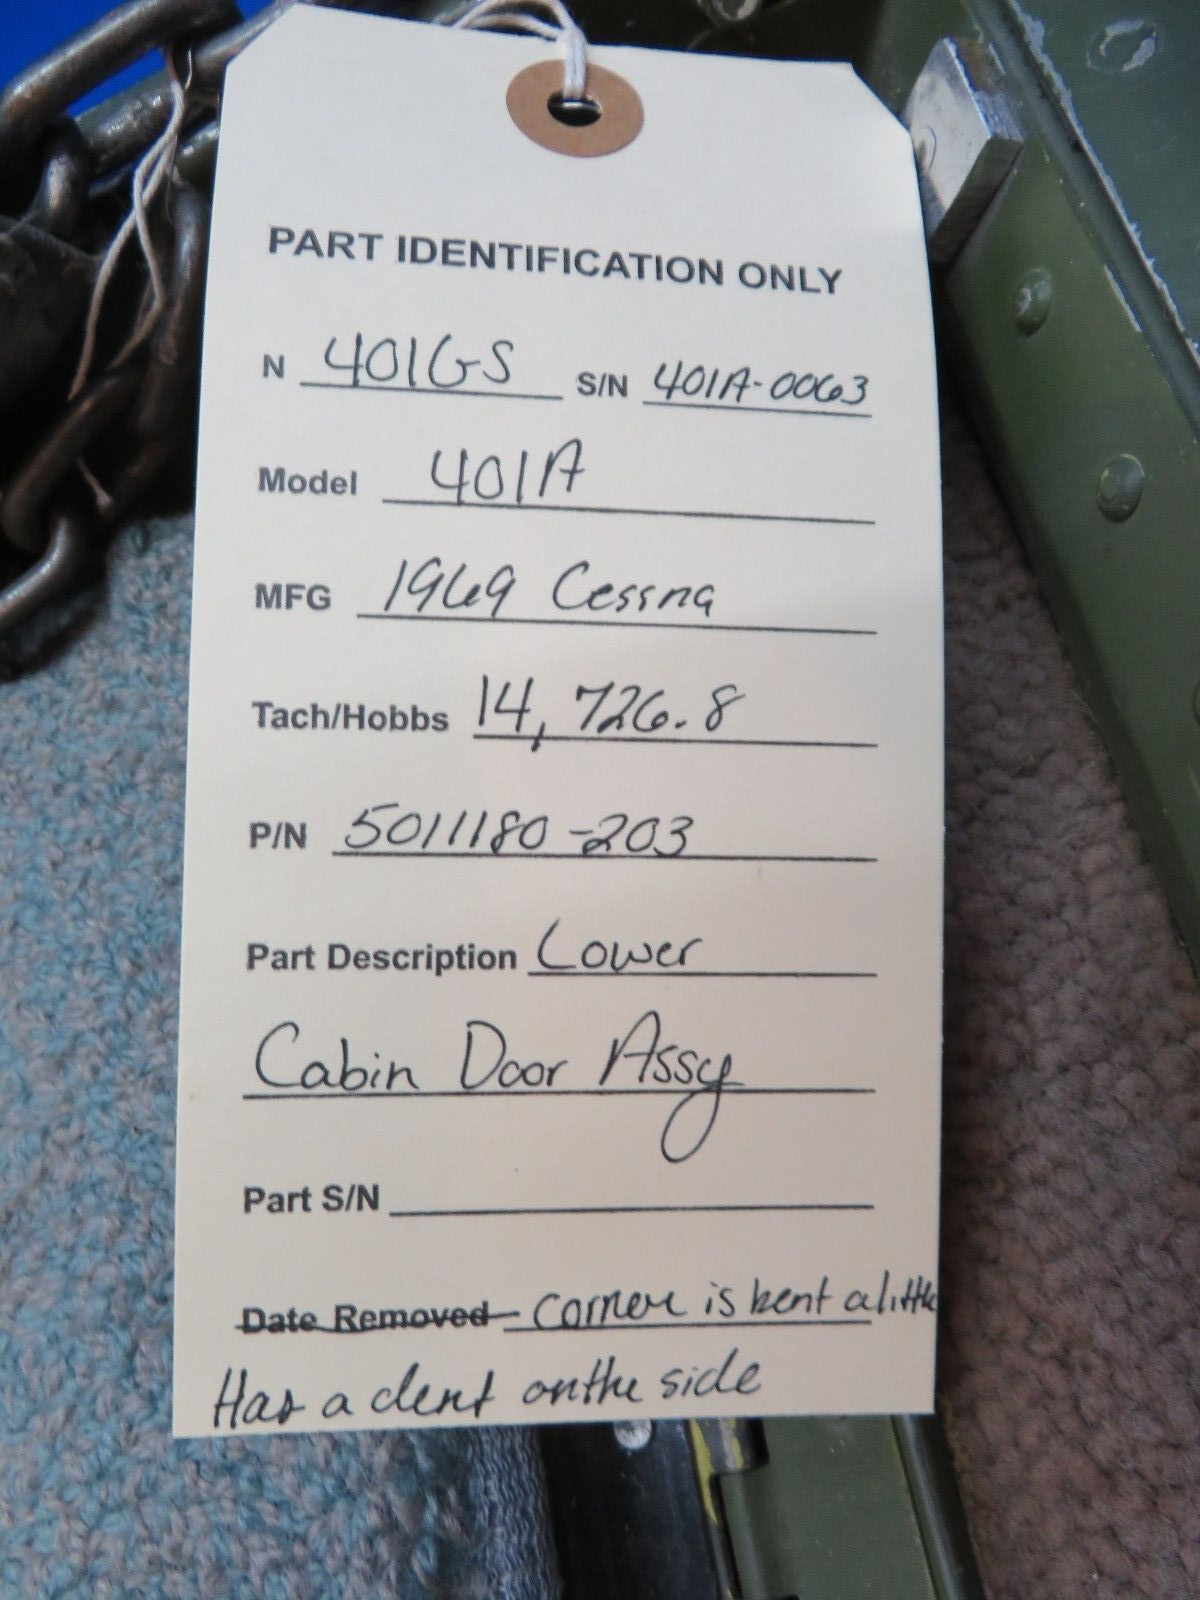 PART IDENTIFICATION ONLY
N 401GS S/N 401A-0063
Model 401A
MFG 1969 Cessna
Tach/Hobbs 14,726.8
P/N 5011180-203
Part Description Lower
Cabin Door Assy
Part S/N
Date Removed corner is bent a little
Has a dent on the side